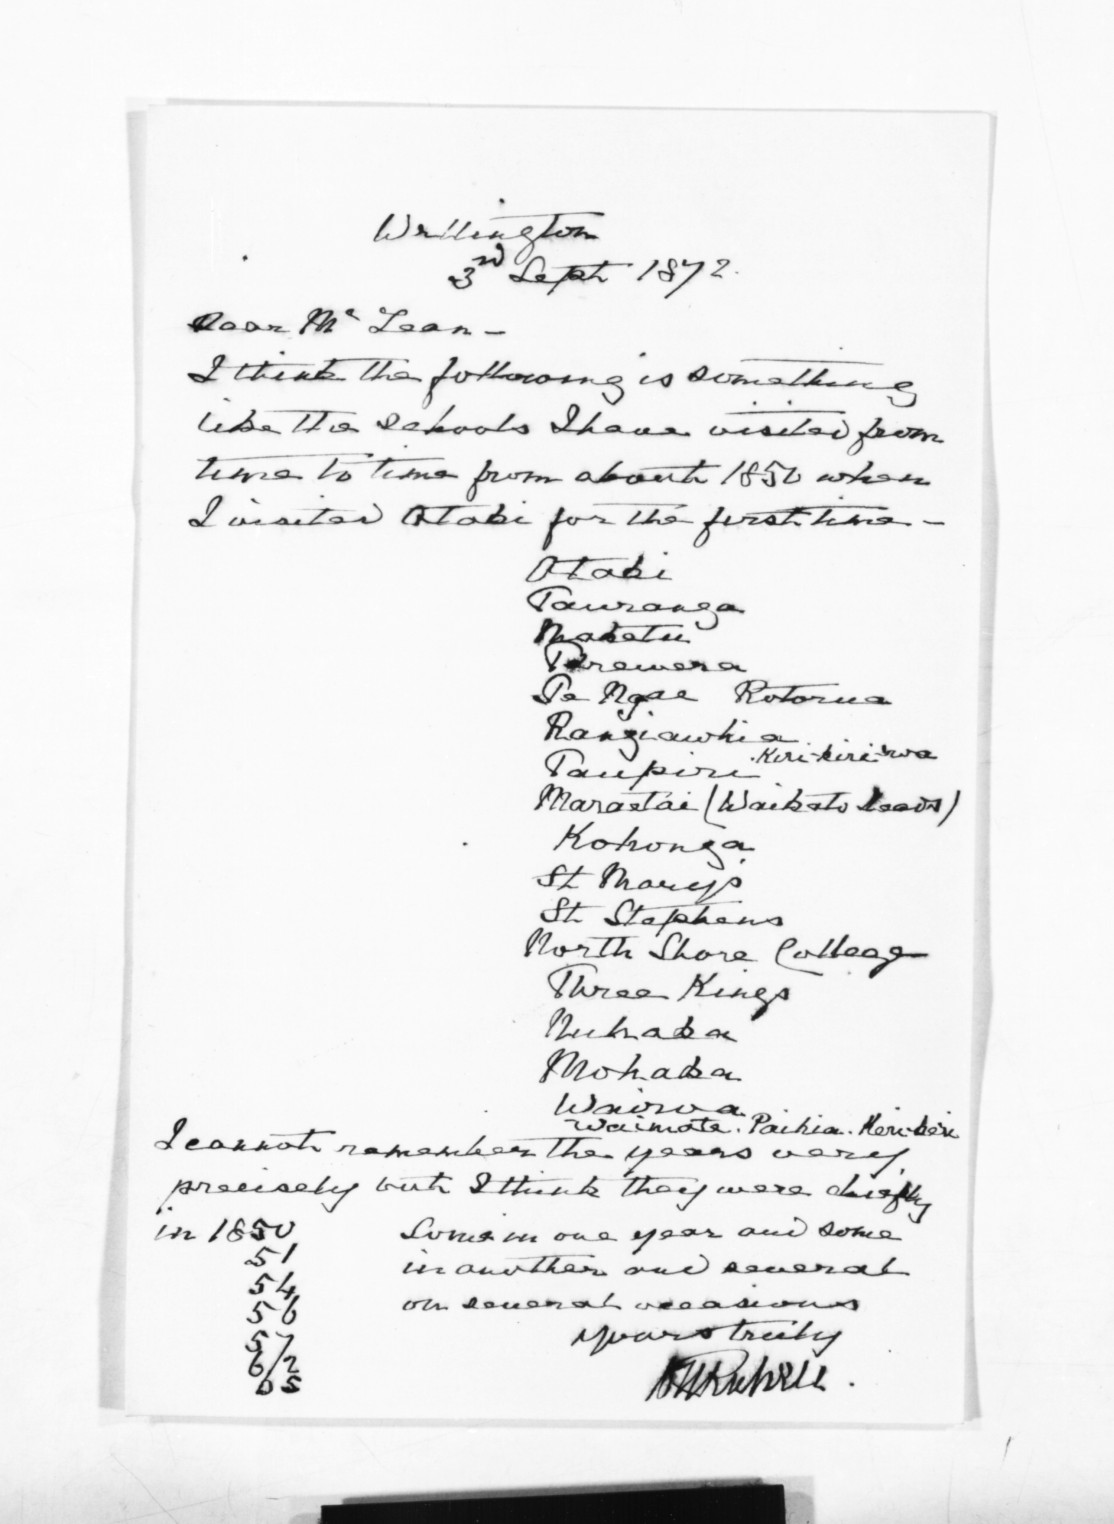 Wellington
3rd Sept 1872.
Dear Mc Lean -
I think the following is something
like the schools I have visited from
time to time from about 1850 when
I visited Otaki for the first time -
Otaki
Tauranga
Maketu
Tarawera
Te Ngae Rotorua
Rangiawhia
Taupiri Kiri-kiri-roa
Maraetai (Waikato heads)
Kohonga
St Mary's
St Stephens
North Shore College
Three Kings
Nuhaka
Mohaka
Wairoa
Waimate. Paihia. Keri-keri
I cannot remember the years very
precisely but I think they were chiefly
in 1850 Some in one year and some
51 in another and several
54 on several occasions
56 yours truly
57
62
65